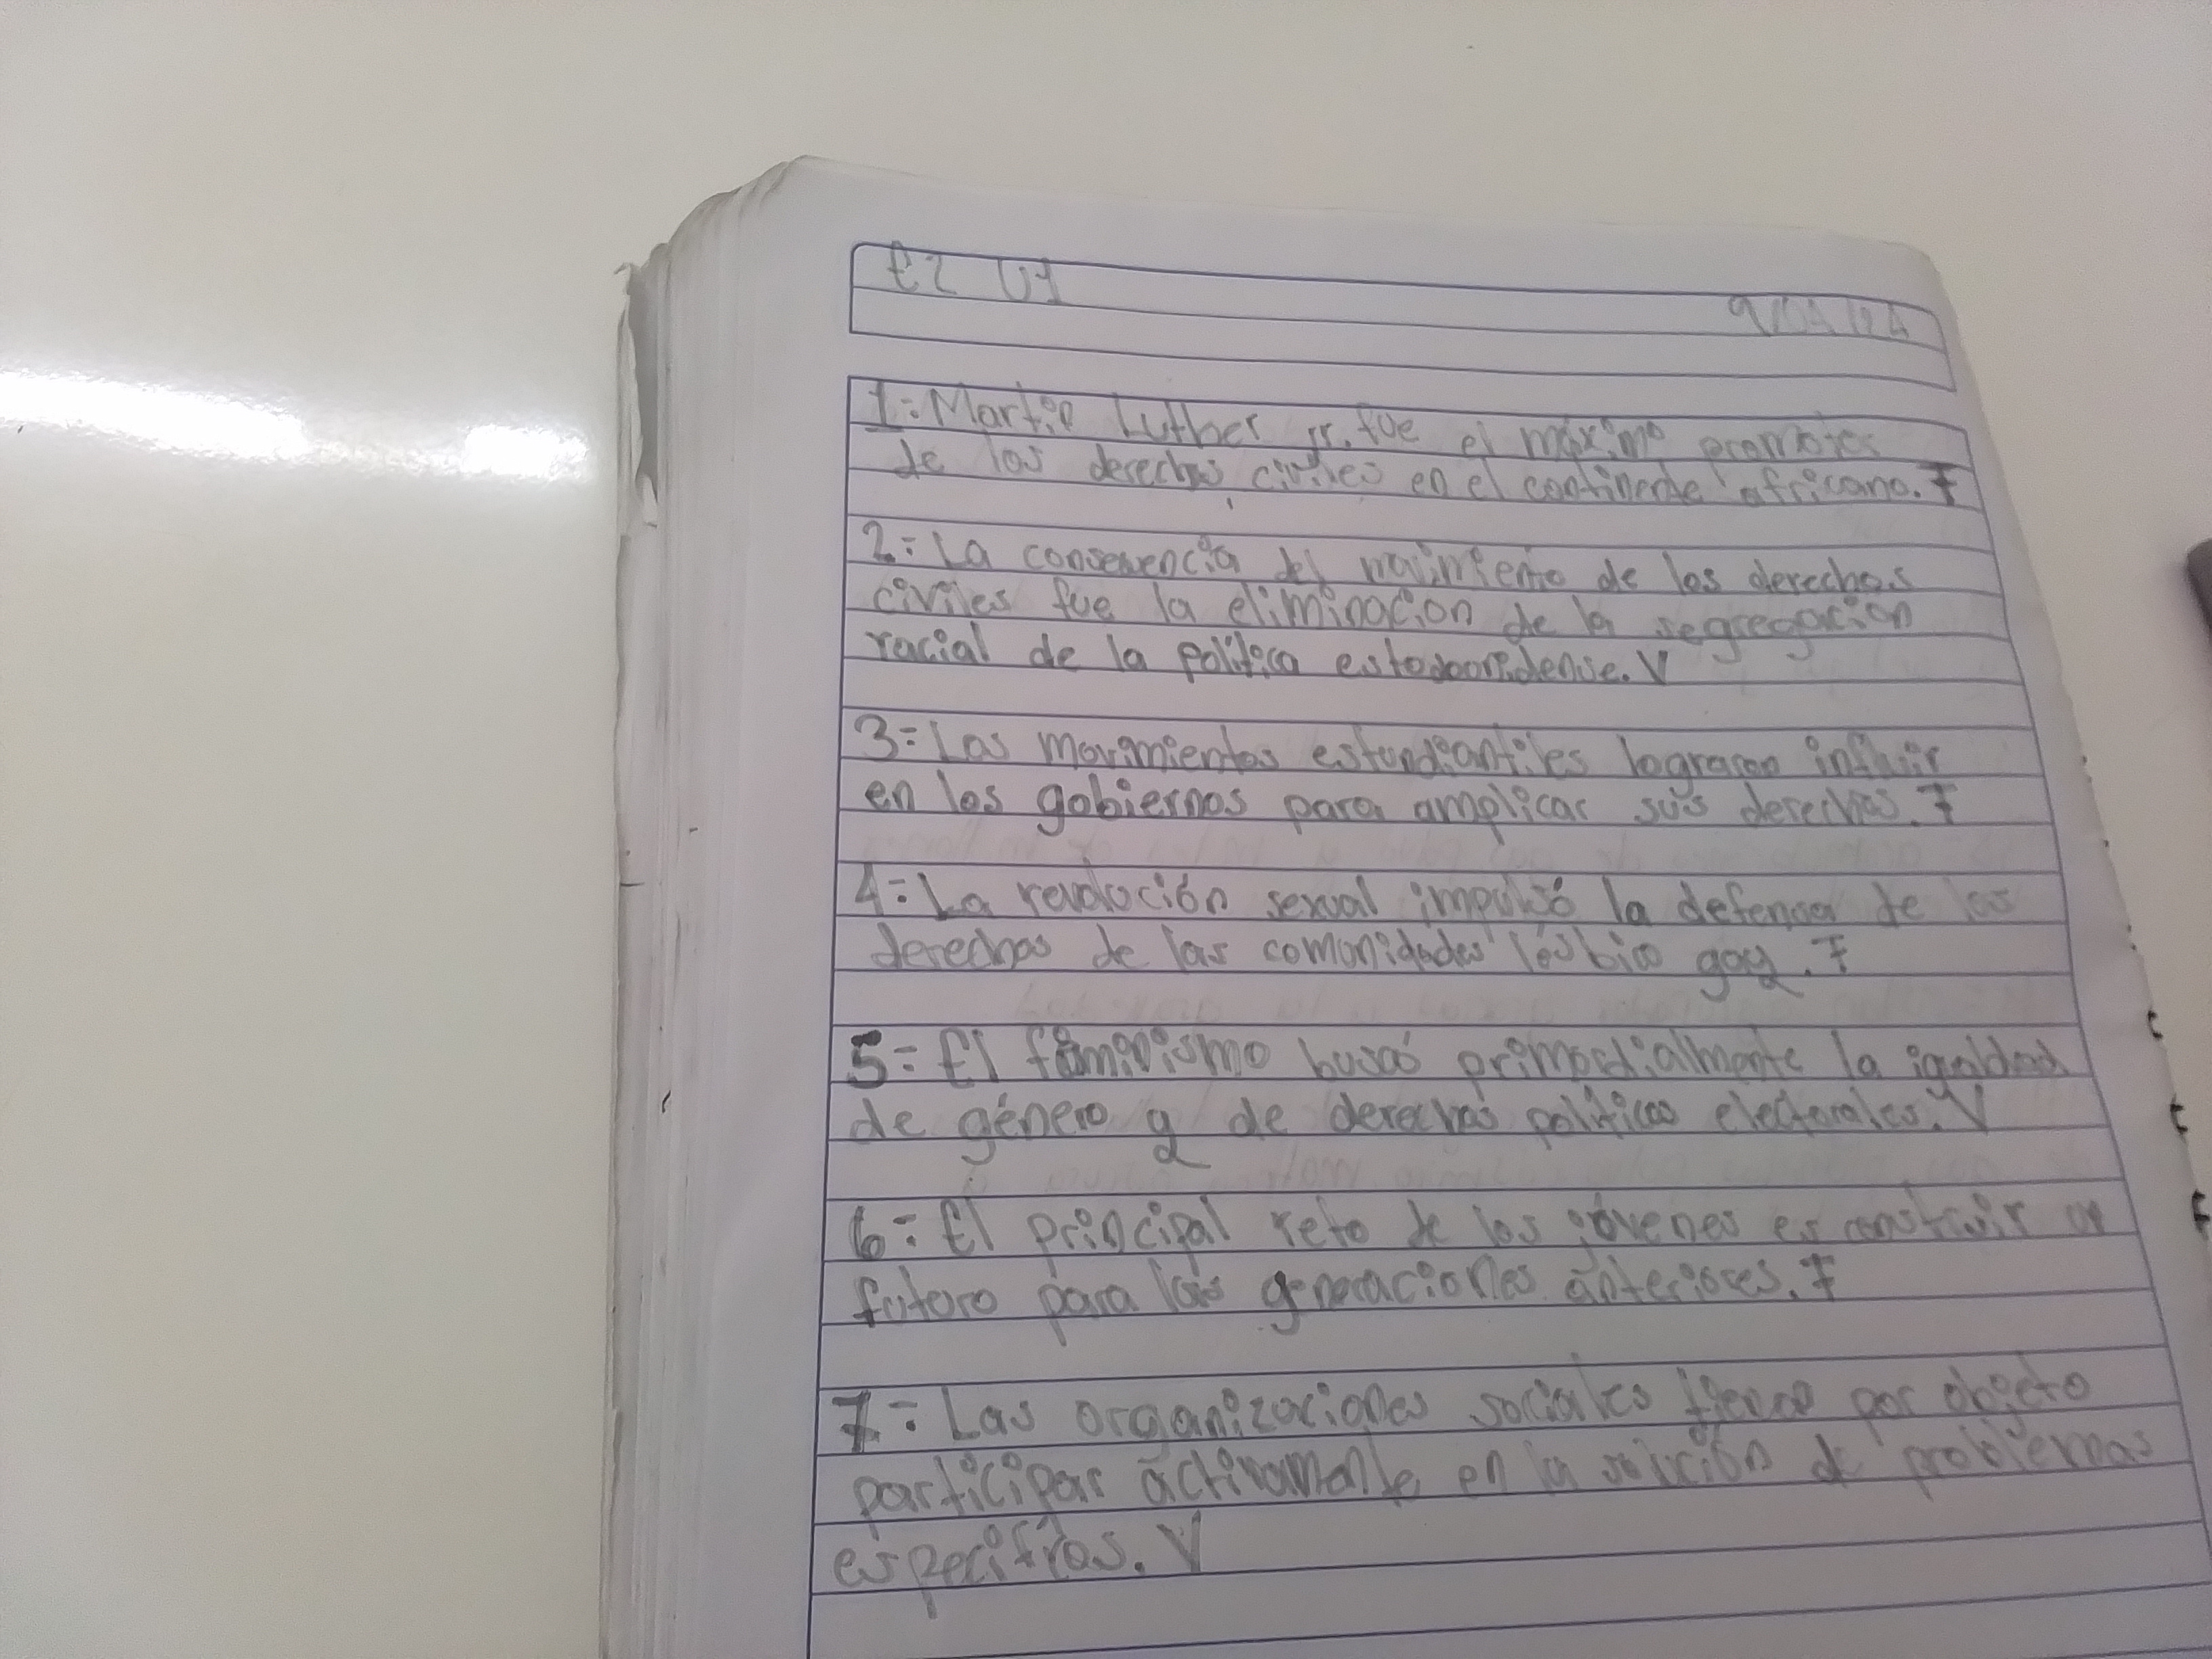 E2 U1
9/04/24
1= Martin Luther jr. fue el máximo promotor
de los derechos civiles en el continente africano. F
2= La consecuencia del movimiento de los derechos
civiles fue la eliminación de la segregación
racial de la política estadounidense. V
3= Los movimientos estundiantiles lograron influir
en los gobiernos para amplicar sus derechos. F
4= La revolución sexual impulsó la defensa de los
derechos de las comunidades lésbico gay. F
5= El feminismo buscó primordialmente la igualdad
de género y de derechos políticos electorales. V
6= El principal reto de los jóvenes es construir un
futuro para las generaciones anteriores. F
7= Las organizaciones sociales tienen por objeto
participar activamente en la solución de problemas
específicos. V